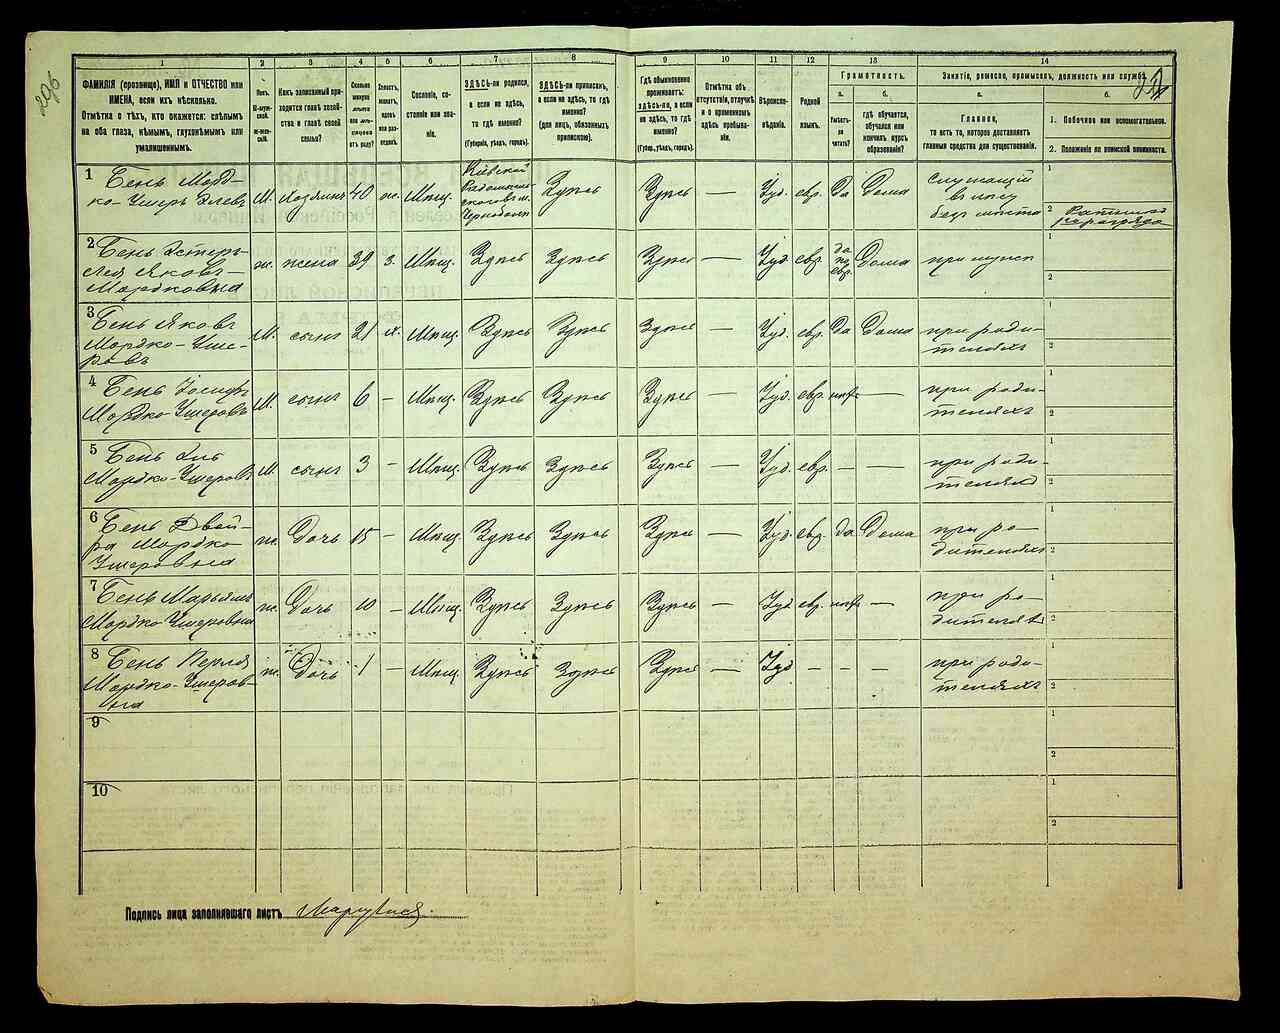 206
22
1 2 3 4 5 6 7 8 9 10 11 12 13 14
ФАМИЛІЯ (прозвище), ИМЯ и ОТЧЕСТВО или
ИМЕНА, если ихъ нѣсколько.
Отмѣтка о тѣхъ, кто окажется: слѣпымъ
на оба глаза, нѣмымъ, глухонѣмымъ или
умалишеннымъ.
Полъ.
М-муж-
ской.
ж-жен-
скій.
Какъ записанный при-
ходится главѣ хозяй-
ства и главѣ своей
семьи?
Сколько
минуло
лѣтъ
или мѣ-
сяцевъ
отъ роду?
Холостъ,
женатъ,
вдовъ
или раз-
веденъ.
Сословіе, со-
стояніе или зва-
ніе.
ЗДѢСЬ-ли родился,
а если не здѣсь,
то гдѣ именно?
(Губернія, уѣздъ, городъ).
ЗДѢСЬ-ли приписанъ,
а если не здѣсь, то гдѣ
именно?
(для лицъ, обязанныхъ
припискою).
Гдѣ обыкновенно
проживаетъ:
здѣсь-ли, а если
не здѣсь, то гдѣ
именно?
(Губерн., уѣздъ, городъ).
Отмѣтка объ
отсутствіи, отлучкѣ
и о временномъ
здѣсь пребыва-
ніи.
Вѣроиспо-
вѣданіе.
Родной
языкъ.
Грамотность.
а.
Умѣетъ-
ли
читать?
б.
гдѣ обучается,
обучался или
кончилъ курсъ
образованія?
Занятіе, ремесло, промыселъ, должность или служба.
а.
Главное,
то есть то, которое доставляетъ
главныя средства для существованія.
б.
1. Побочное или вспомогательное.
2. Положеніе по воинской повинности.
1 Бень Морд-
ко-Ушеръ Элевъ М. Хозяинъ 40 ж. Мѣщ. Кіевской Радомысль- скаго у. м. Чернобыль Здѣсь Здѣсь — Іуд. евр. Да Дома служащій
безъ мѣста
1
2
2 Бень Эстеръ-
Лея Яковъ-
Мордковна ж. жена 39 з. Мѣщ. Здѣсь Здѣсь Здѣсь — Іуд. евр. да по евр. Дома при мужѣ
1
2
3 Бень Яковъ
Мордко-Уше-
ровъ М. сынъ 21 х. Мѣщ. Здѣсь Здѣсь Здѣсь — Іуд. евр. Да Дома при роди-
теляхъ
1
2
4 Бень Іосифъ
Мордко-Ушеровъ М. сынъ 6 — Мѣщ. Здѣсь Здѣсь Здѣсь — Іуд. евр. нѣтъ — при роди-
теляхъ
1
2
5 Бень Эль
Мордко-Ушеровъ М. сынъ 3 — Мѣщ. Здѣсь Здѣсь Здѣсь — Іуд. евр. — — при роди-
теляхъ
1
2
6 Бень Двей-
ра Мордко
Ушеровна ж. Дочь 15 — Мѣщ. Здѣсь Здѣсь Здѣсь — Іуд. евр. да Дома при ро-
дителяхъ
1
2
7 Бень Марьямъ
Мордко-Ушеровна ж. Дочь 10 — Мѣщ. Здѣсь Здѣсь Здѣсь — Іуд. евр. нѣтъ — при ро-
дителяхъ
1
2
8 Бень Перля
Мордко-Ушеров-
на ж. Дочь 1 — Мѣщ. Здѣсь Здѣсь Здѣсь — Іуд — — — при роди-
теляхъ
1
2
9
1
2
10
1
2
Подпись лица заполнявшаго листъ